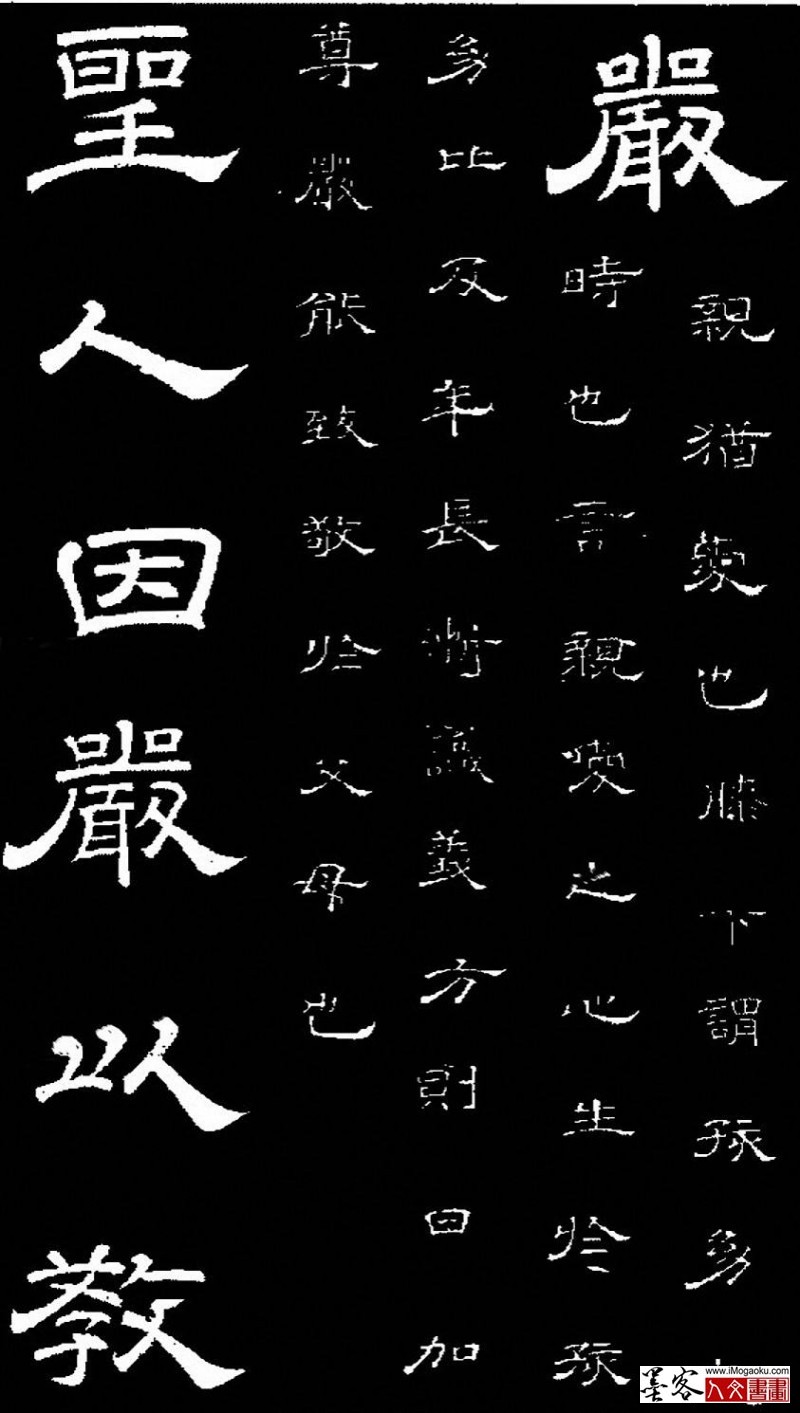 嚴
親猶愛也膝下謂孩幼
時也言親愛之心生於孩
幼比及年長漸識義方則日加
尊嚴能致敬於父母也
聖人因嚴以教
www.iMogaoku.com
墨客人文書畫